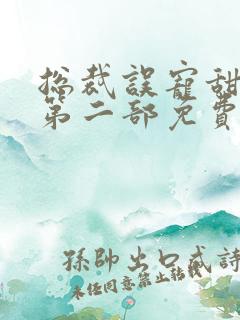 總裁誤寵甜
第二部免費
孫帥出口成詩
未经同意禁止转载